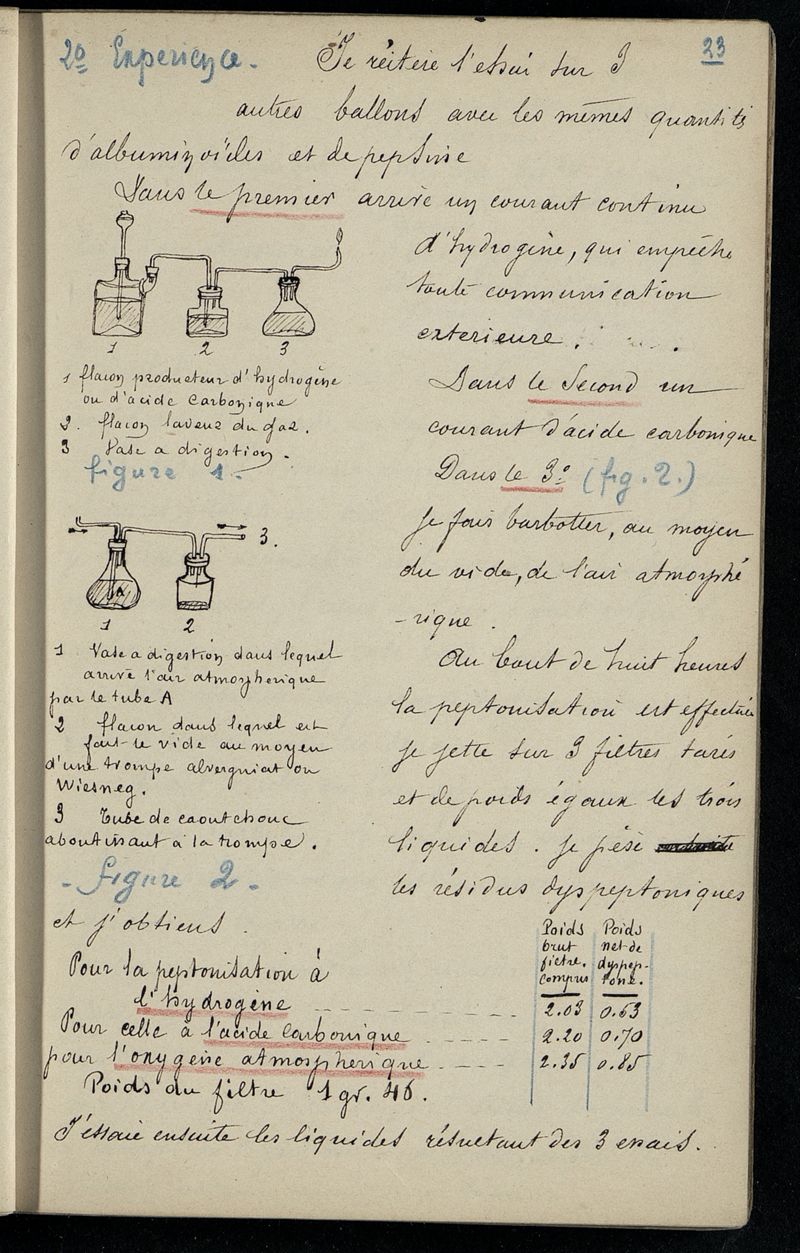 23
2º Expérience. Je réitère l'essai sur 3
autres ballons avec les mêmes quantités
d'albuminoïdes et de pepsine
Dans le premier arrive un courant continu
d'hydrogène, qui empêche
toute communication
exterieure.
Dans le Second un
courant d'acide carbonique
Dans le 3º (fig. 2.)
je fais barbotter, au moyen
du vide, de l'air atmosphé
-rique.
Au bout de huit heures
la peptonisation est effectuée
je jette sur 3 filtres tarés
et de poids égaux les trois
liquides. je pèse
les résidus dyspeptoniques
1 2 3
1 flacon producteur d'hydrogène
ou d'acide Carbonique
2. flacon laveur du gaz.
3 Vase a digestion.
figure 1.
3.
A
1 2
1 Vase a digestion dans lequel
arrive l'air atmospherique
par le tube A
2 flacon dans lequel est
fait le vide au moyen
d'une trompe alvergniat ou
Wiesneg.
3 Tube de caoutchouc
aboutissant à la trompe.
- figure 2 -
et j'obtiens.
Poids brut filtre. compris
Poids net de dyspep-tone.
Pour la peptonisation à
l'hydrogène 2.03 0.53
Pour celle à l'acide Carbonique 2.20 0.70
pour l'oxygène atmospherique 2.35 0.85
Poids du filtre 1 gr. 46.
J'essaie ensuite les liquides résultant des 3 essais.